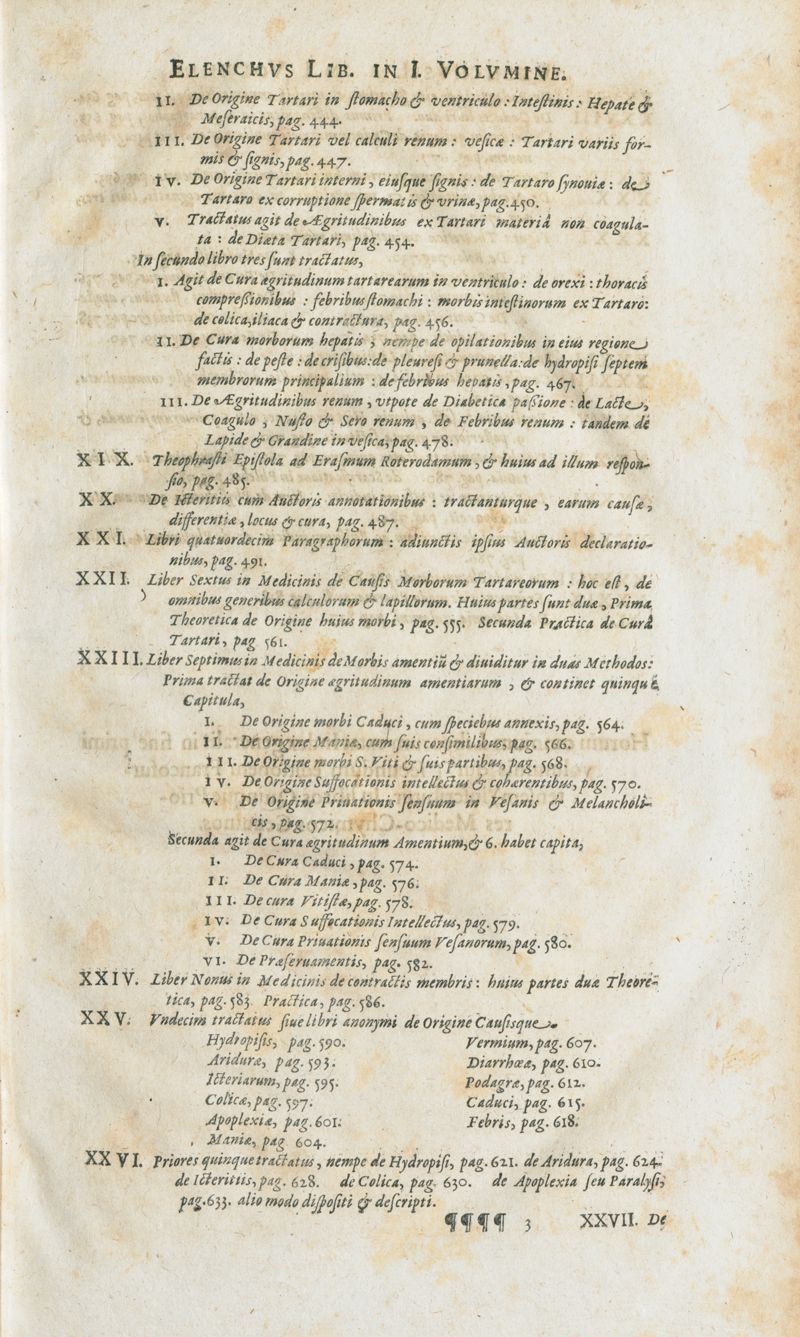 ELENCHVS LIB. IN I. VOLVMINE.
II. De Origine Tartari in ſtomacho & ventriculo : Inteſtinis : Hepate &
Meſeraicis, pag. 444.
III. De Origine Tartari vel calculi renum : veſicæ : Tartari variis for-
mis & ſignis, pag. 447.
IV. De Origine Tartari interni, eiuſque ſignis : de Tartaro ſynouiæ : de
Tartaro ex corruptione ſpermatis & vrinæ, pag. 450.
V. Tractatus agit de Ægritudinibus ex Tartari materiâ non coagula-
ta : de Diæta Tartari, pag. 454.
In ſecundo libro tres ſunt tractatus,
I. Agit de Cura ægritudinum tartarearum in ventriculo : de orexi : thoracis
compreſſionibus : febribus ſtomachi : morbis inteſtinorum ex Tartaro:
de colica, iliaca & contractura, pag. 456.
II. De Cura morborum hepatis, nempe de opilationibus in eius regione
factis : de peſte : de criſibus: de pleureſi & prunella: de hydropiſi ſeptem
membrorum principalium : de febribus hepatis, pag. 467.
III. De Ægritudinibus renum, vtpote de Diabetica paſſione : de Lacte,
Coagulo, Nuſto & Sero renum, de Febribus renum : tandem de
Lapide & Grandine in veſica, pag. 478.
XIX. Theophraſti Epiſtola ad Eraſmum Roterodamum, & huius ad illum reſpon-
ſio, pag. 485.
XX. De Icteritiis cum Auctoris annotationibus : tractanturque, earum cauſæ,
differentiæ, locus & cura, pag. 487.
XXI. Libri quatuordecim Paragraphorum : adiunctis ipſius Auctoris declaratio-
nibus, pag. 491.
XXII. Liber Sextus in Medicinis de Cauſis Morborum Tartareorum : hoc eſt, de
omnibus generibus calculorum & lapillorum. Huius partes ſunt duæ, Prima
Theoretica de Origine huius morbi, pag. 555. Secunda Practica de Curâ
Tartari, pag 561.
XXIII. Liber Septimus in Medicinis de Morbis amentiũ & diuiditur in duas Methodos:
Prima tractat de Origine ægritudinum amentiarum, & continet quinque
Capitula,
I. De Origine morbi Caduci, cum ſpeciebus annexis, pag. 564.
II. De Origine Maniæ, cum ſuis conſimilibus, pag. 566.
III. De Origine morbi S. Viti & ſuis partibus, pag. 568.
IV. De Origine Suffocationis intellectus & cohærentibus, pag. 570.
V. De Origine Priuationis ſenſuum in Veſanis & Melancholi-
cis, pag. 572.
Secunda agit de Cura ægritudinum Amentium, & 6. habet capita,
I. De Cura Caduci, pag. 574.
II. De Cura Maniæ, pag. 576.
III. De cura Vitiſtæ, pag. 578.
IV. De Cura Suffocationis Intellectus, pag. 579.
V. De Cura Priuationis ſenſuum Veſanorum, pag. 580.
VI. De Præſeruamentis, pag. 582.
XXIV. Liber Nonus in Medicinis de contractis membris : huius partes duæ Theore-
tica, pag. 583. Practica, pag. 586.
XXV. Vndecim tractatus ſiue libri anonymi de Origine Cauſisque.
Hydropiſis, pag. 590.
Ariduræ, pag. 593.
Icteriarum, pag. 595.
Colicæ, pag. 597.
Apoplexiæ, pag. 601.
Maniæ, pag 604.
Vermium, pag. 607.
Diarrhœæ, pag. 610.
Podagræ, pag. 612.
Caduci, pag. 615.
Febris, pag. 618.
XXVI. Priores quinque tractatus, nempe de Hydropiſi, pag. 621. de Aridura, pag. 624.
de Icteritiis, pag. 628. de Colica, pag. 630. de Apoplexia ſeu Paralyſi,
pag. 633. alio modo diſpoſiti & deſcripti.
¶¶¶¶ 3 XXVII. De